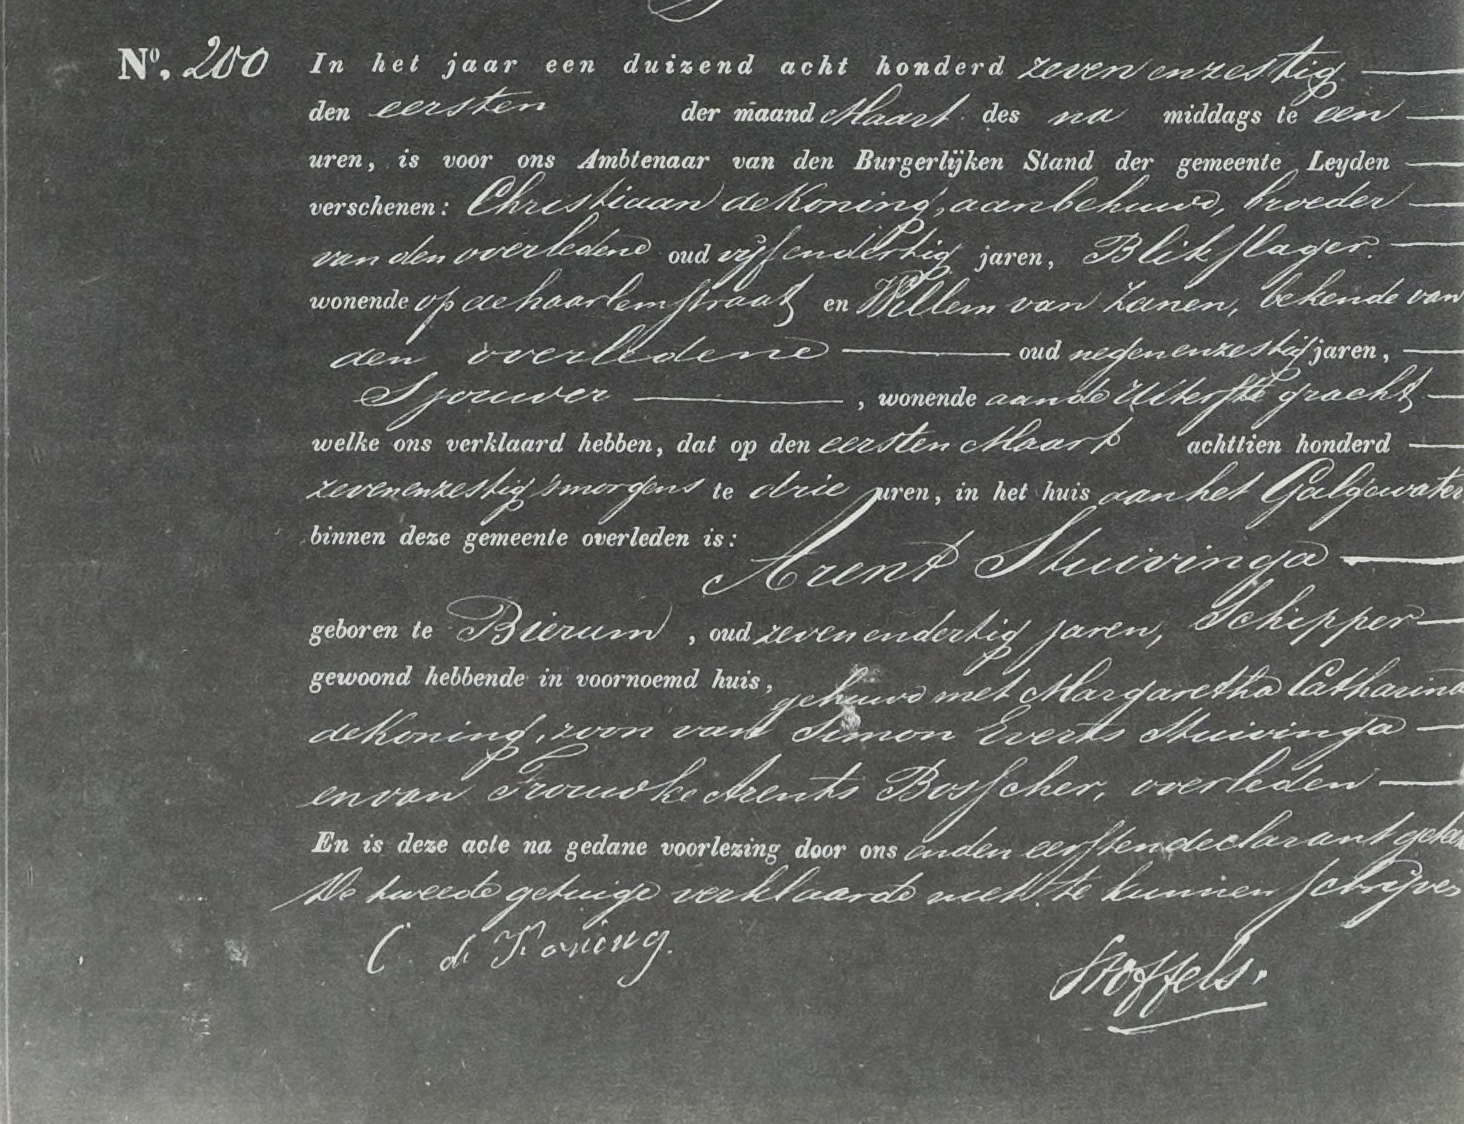 No. 200 In het jaar een duizend acht honderd zevenenzestig
den eersten der maand Maart des na middags te een
uren, is voor ons Ambtenaar van den Burgerlijken Stand der gemeente Leyden
verschenen: Christiaan de Koning, aanbehuwd, broeder
van den overledene oud vijfendertig jaren, Blikslager
wonende op de haarlemstraat en Willem van Zanen, bekende van
den overledene oud negenenzestig jaren,
Sjouwer, wonende aan de Uiterste gracht
welke ons verklaard hebben, dat op den eersten Maart achttien honderd
zevenenzestig 'smorgens te drie uren, in het huis aan het Galgewater
binnen deze gemeente overleden is:
Arent Stuivinga
geboren te Bierum, oud zevenendertig jaren, Schipper
gewoond hebbende in voornoemd huis, gehuwd met Margaretha Catharina
de Koning, zoon van Simon Everts Stuivinga
en van Trouwke Arents Bosscher, overleden
En is deze acte na gedane voorlezing door ons en den eersten declarant getek
De tweede getuige verklaarde niet te kunnen schrijven
C de Koning.
Stoffels.